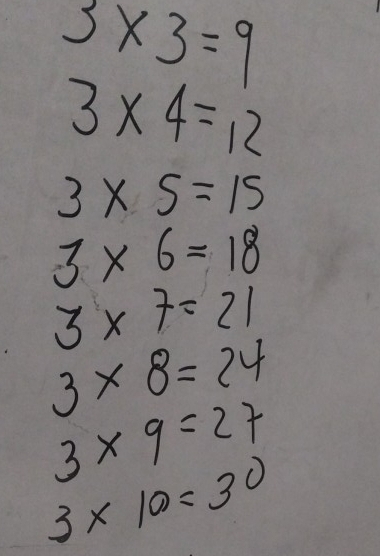 3 × 3 = 9
3 × 4 = 12
3 × 5 = 15
3 × 6 = 18
3 × 7 = 21
3 × 8 = 24
3 × 9 = 27
3 × 10 = 30